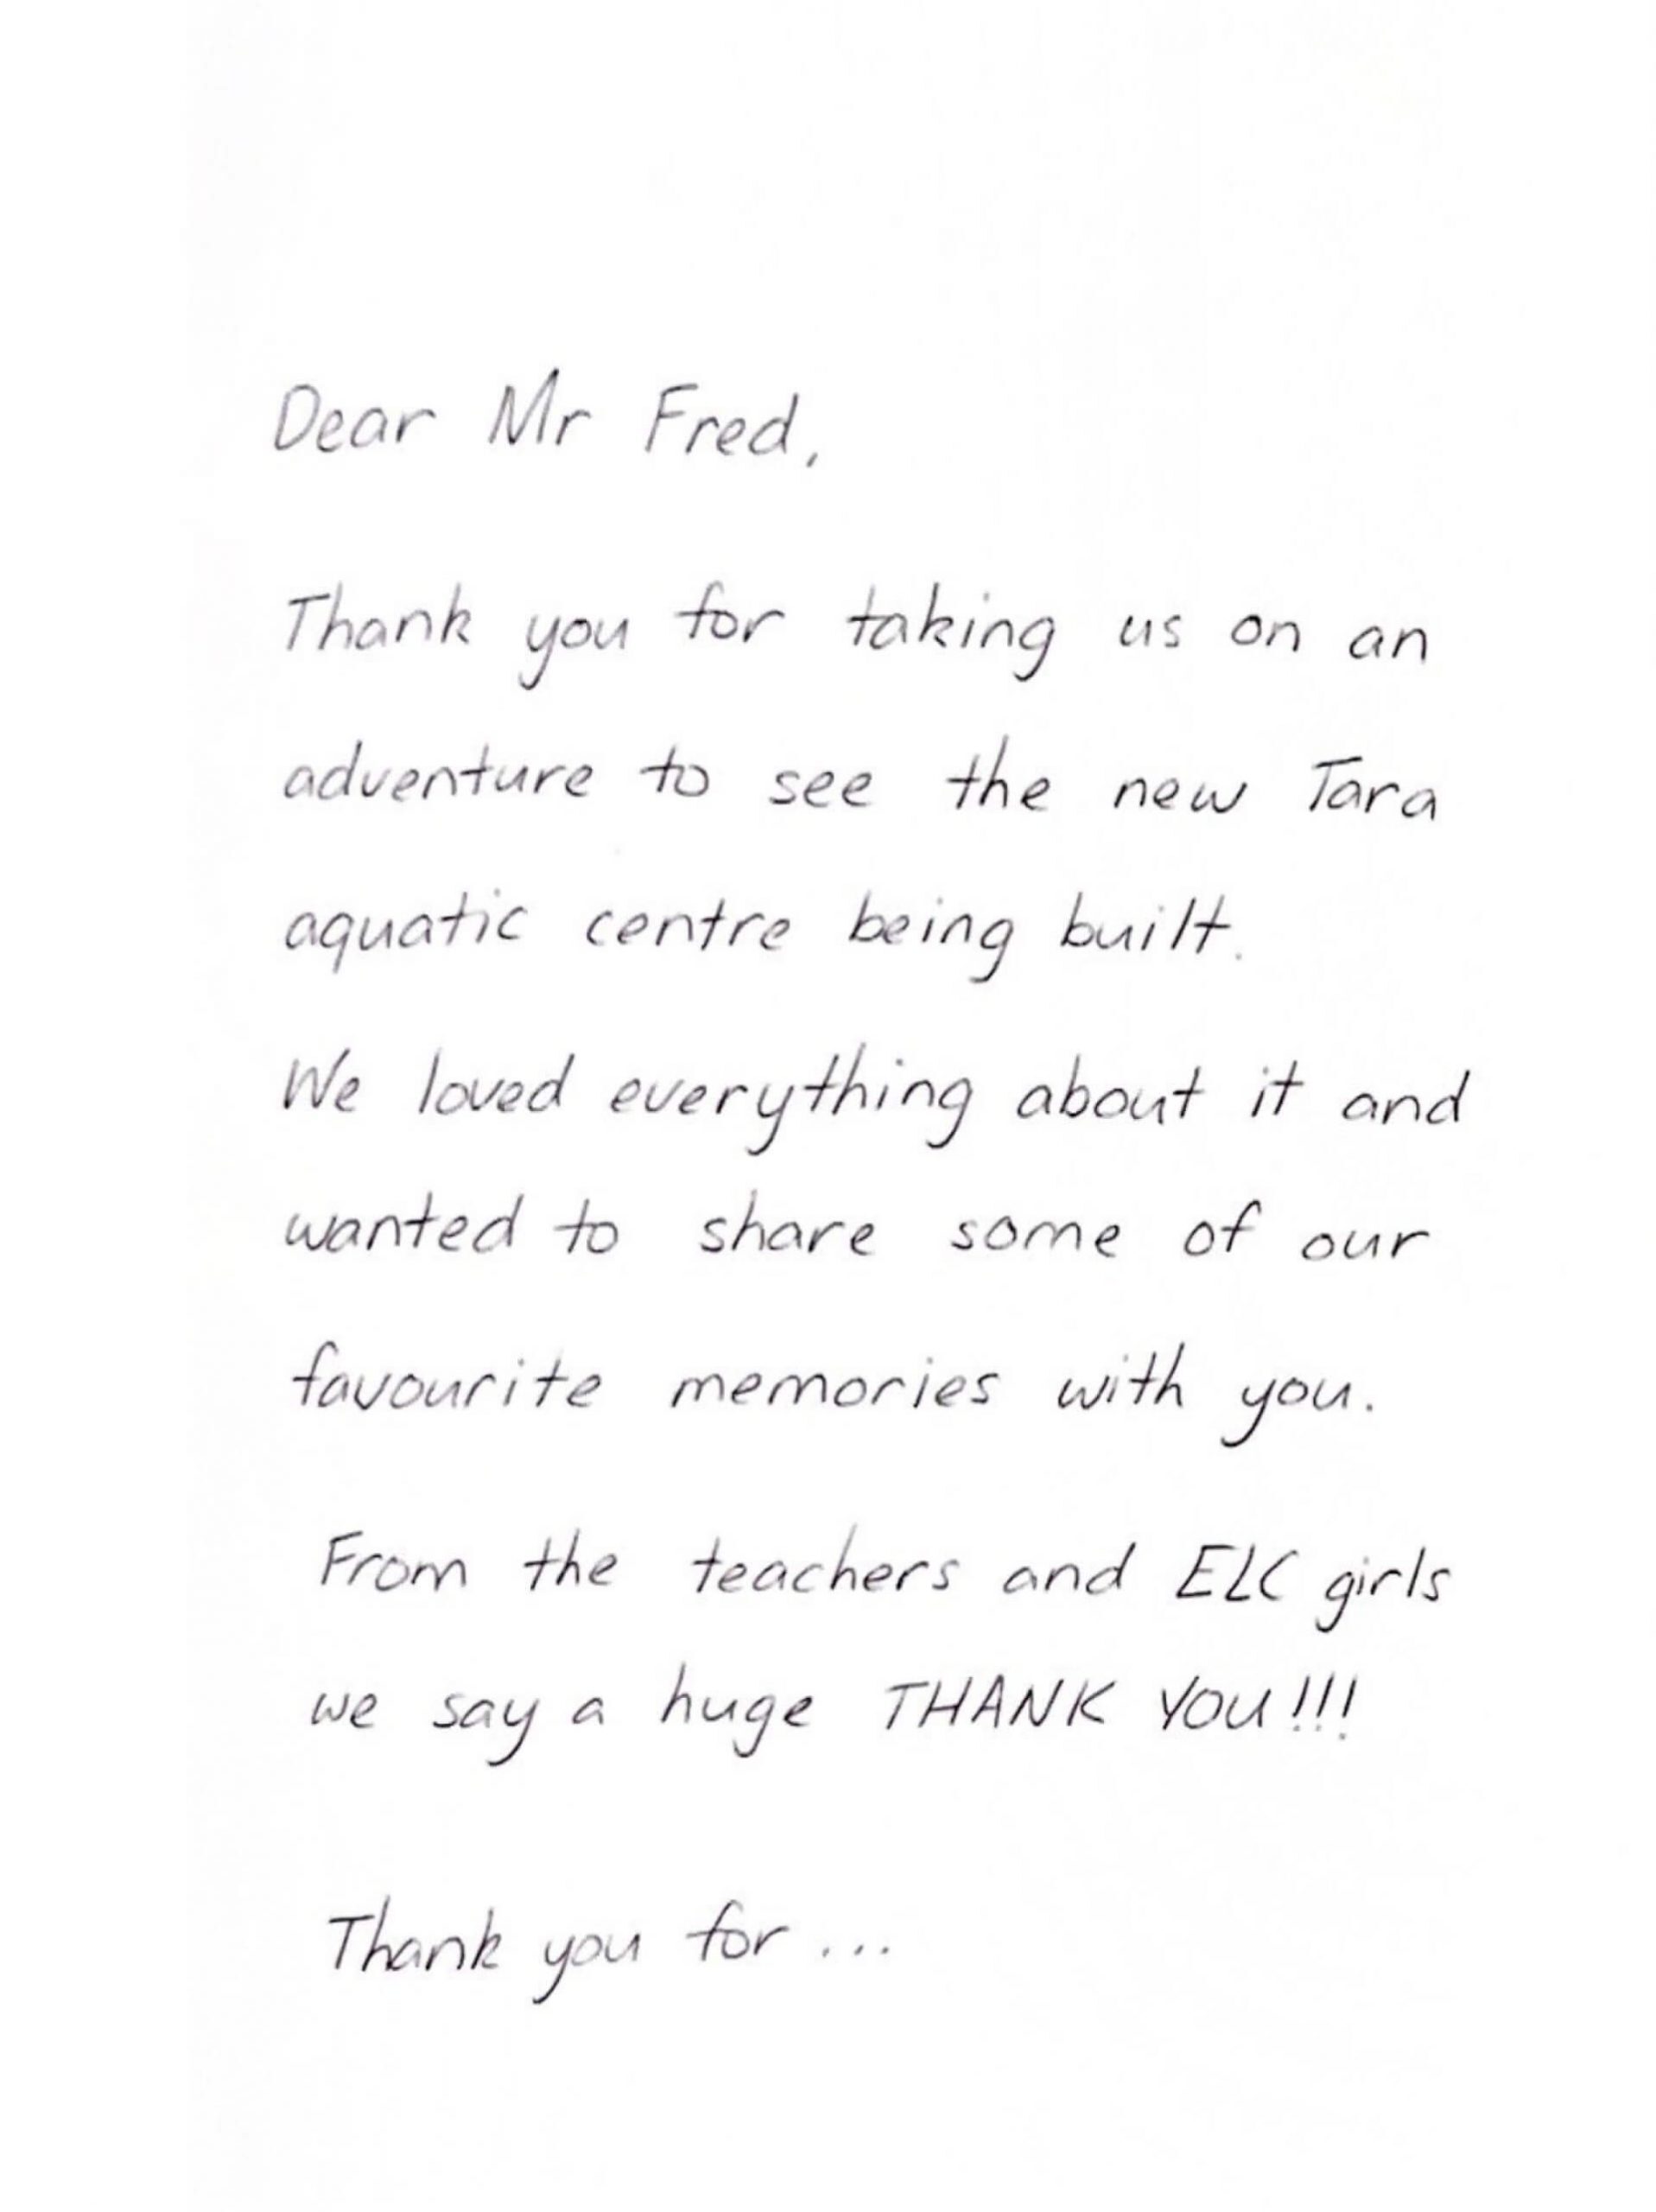 Dear Mr Fred,
Thank you for taking us on an
adventure to see the new Tara
aquatic centre being built.
We loved everything about it and
wanted to share some of our
favourite memories with you.
From the teachers and ELC girls
we say a huge THANK YOU!!!
Thank you for ...